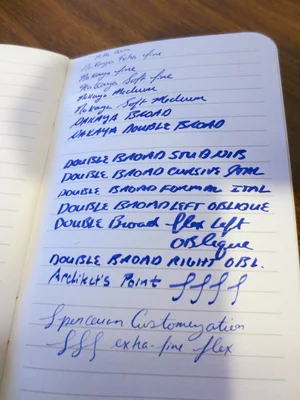 Nakaya Extra fine
Nakaya fine
Nakaya Soft fine
Nakaya Medium
Nakaya Soft Medium
NAKAYA BROAD
NAKAYA DOUBLE BROAD
DOUBLE BROAD STUB NIB
DOUBLE BROAD CURSIVE ITAL
DOUBLE BROAD FORMAL ITAL
DOUBLE BROAD LEFT OBLIQUE
DOUBLE Broad flex left
OBlique
DOUBLE BROAD RIGHT OBL.
Architect's Point
Spencerian Customization
extra-fine flex